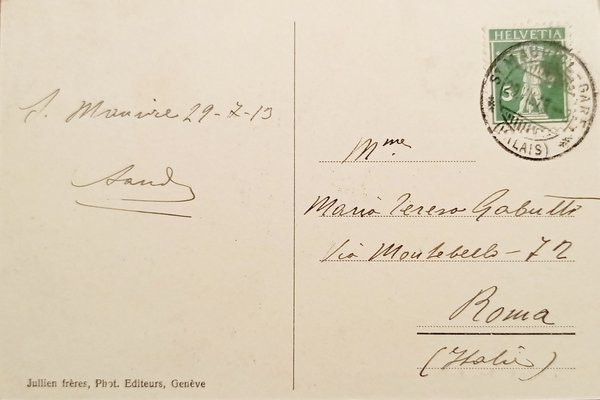 HELVETIA
ST MAURICE-GARE
(VALAIS)
S. Maurice 29-7-13
Mme
Maria Teresa Gabutti
Via Montebello - 72
Roma
(Italie)
Jullien frères, Phot. Editeurs, Genève